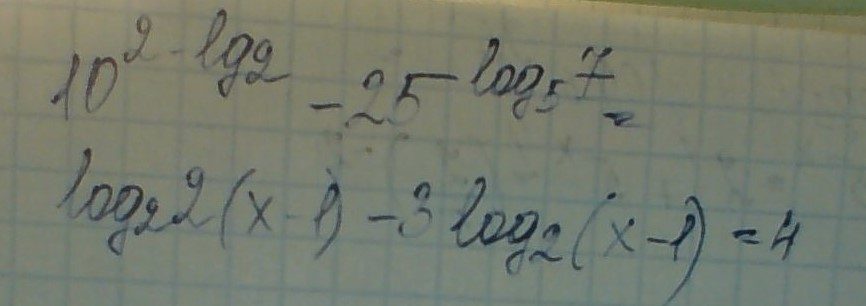 10^{2-lg2} - 25^{log_5 7} =
log_2 2(x-1) - 3 log_2(x-1) = 4